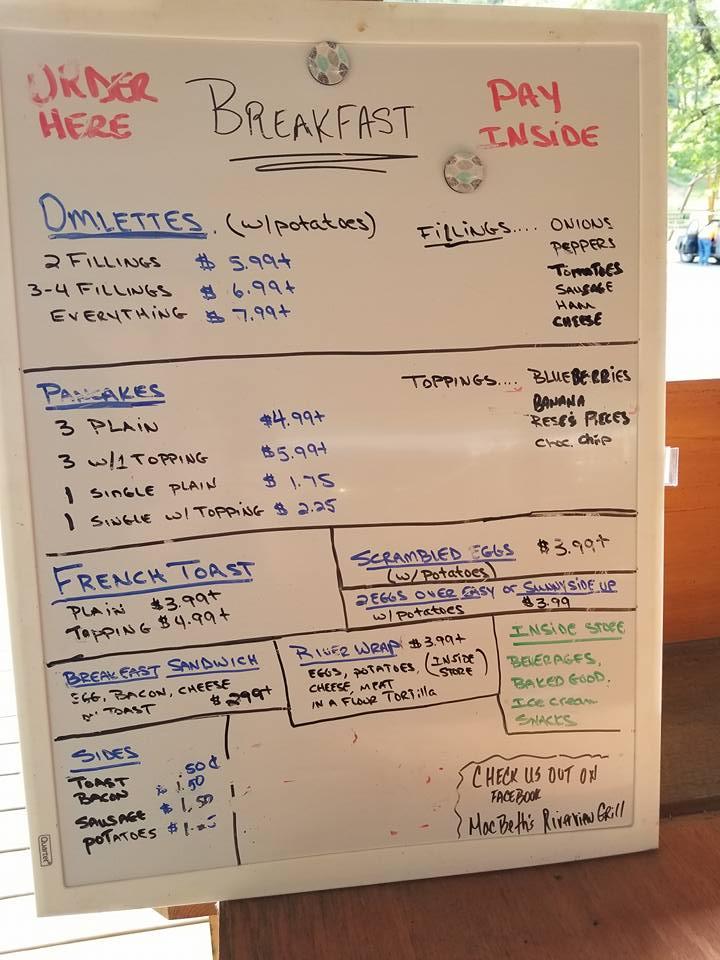 ORDER HERE
BREAKFAST
PAY INSIDE
OMLETTES (w/potatoes)
2 FILLINGS $ 5.99+
3-4 FILLINGS $ 6.99+
EVERYTHING $ 7.99+
FILLINGS.... ONIONS
PEPPERS
TOMATOES
SAUSAGE
HAM
CHEESE
PANCAKES
3 PLAIN $4.99+
3 w/1 TOPPING $5.99+
1 SINGLE PLAIN $ 1.75
1 SINGLE w/TOPPING $ 2.25
TOPPINGS.... BLUEBERRIES
BANANA
RESE'S PIECES
CHOC. CHIP
FRENCH TOAST
PLAIN $3.99+
TOPPING $4.99+
SCRAMBLED EGGS $3.99+
(w/potatoes)
2 EGGS OVER EASY or SUNNYSIDE UP
w/potatoes $3.99
BREAKFAST SANDWICH
EGG, BACON, CHEESE
TOAST $2.99+
RIVER WRAP $3.99+
EGGS, POTATOES, (INSIDE STORE)
CHEESE, MEAT
IN A FLOUR TORTILLA
INSIDE STORE
BEVERAGES,
BAKED GOOD.
ICE CREAM
SNACKS
SIDES
TOAST .50¢
BACON 1.50
SAUSAGE $1.50
POTATOES
CHECK US OUT ON
FACEBOOK
MacBeth's Riverview Grill
Quartet